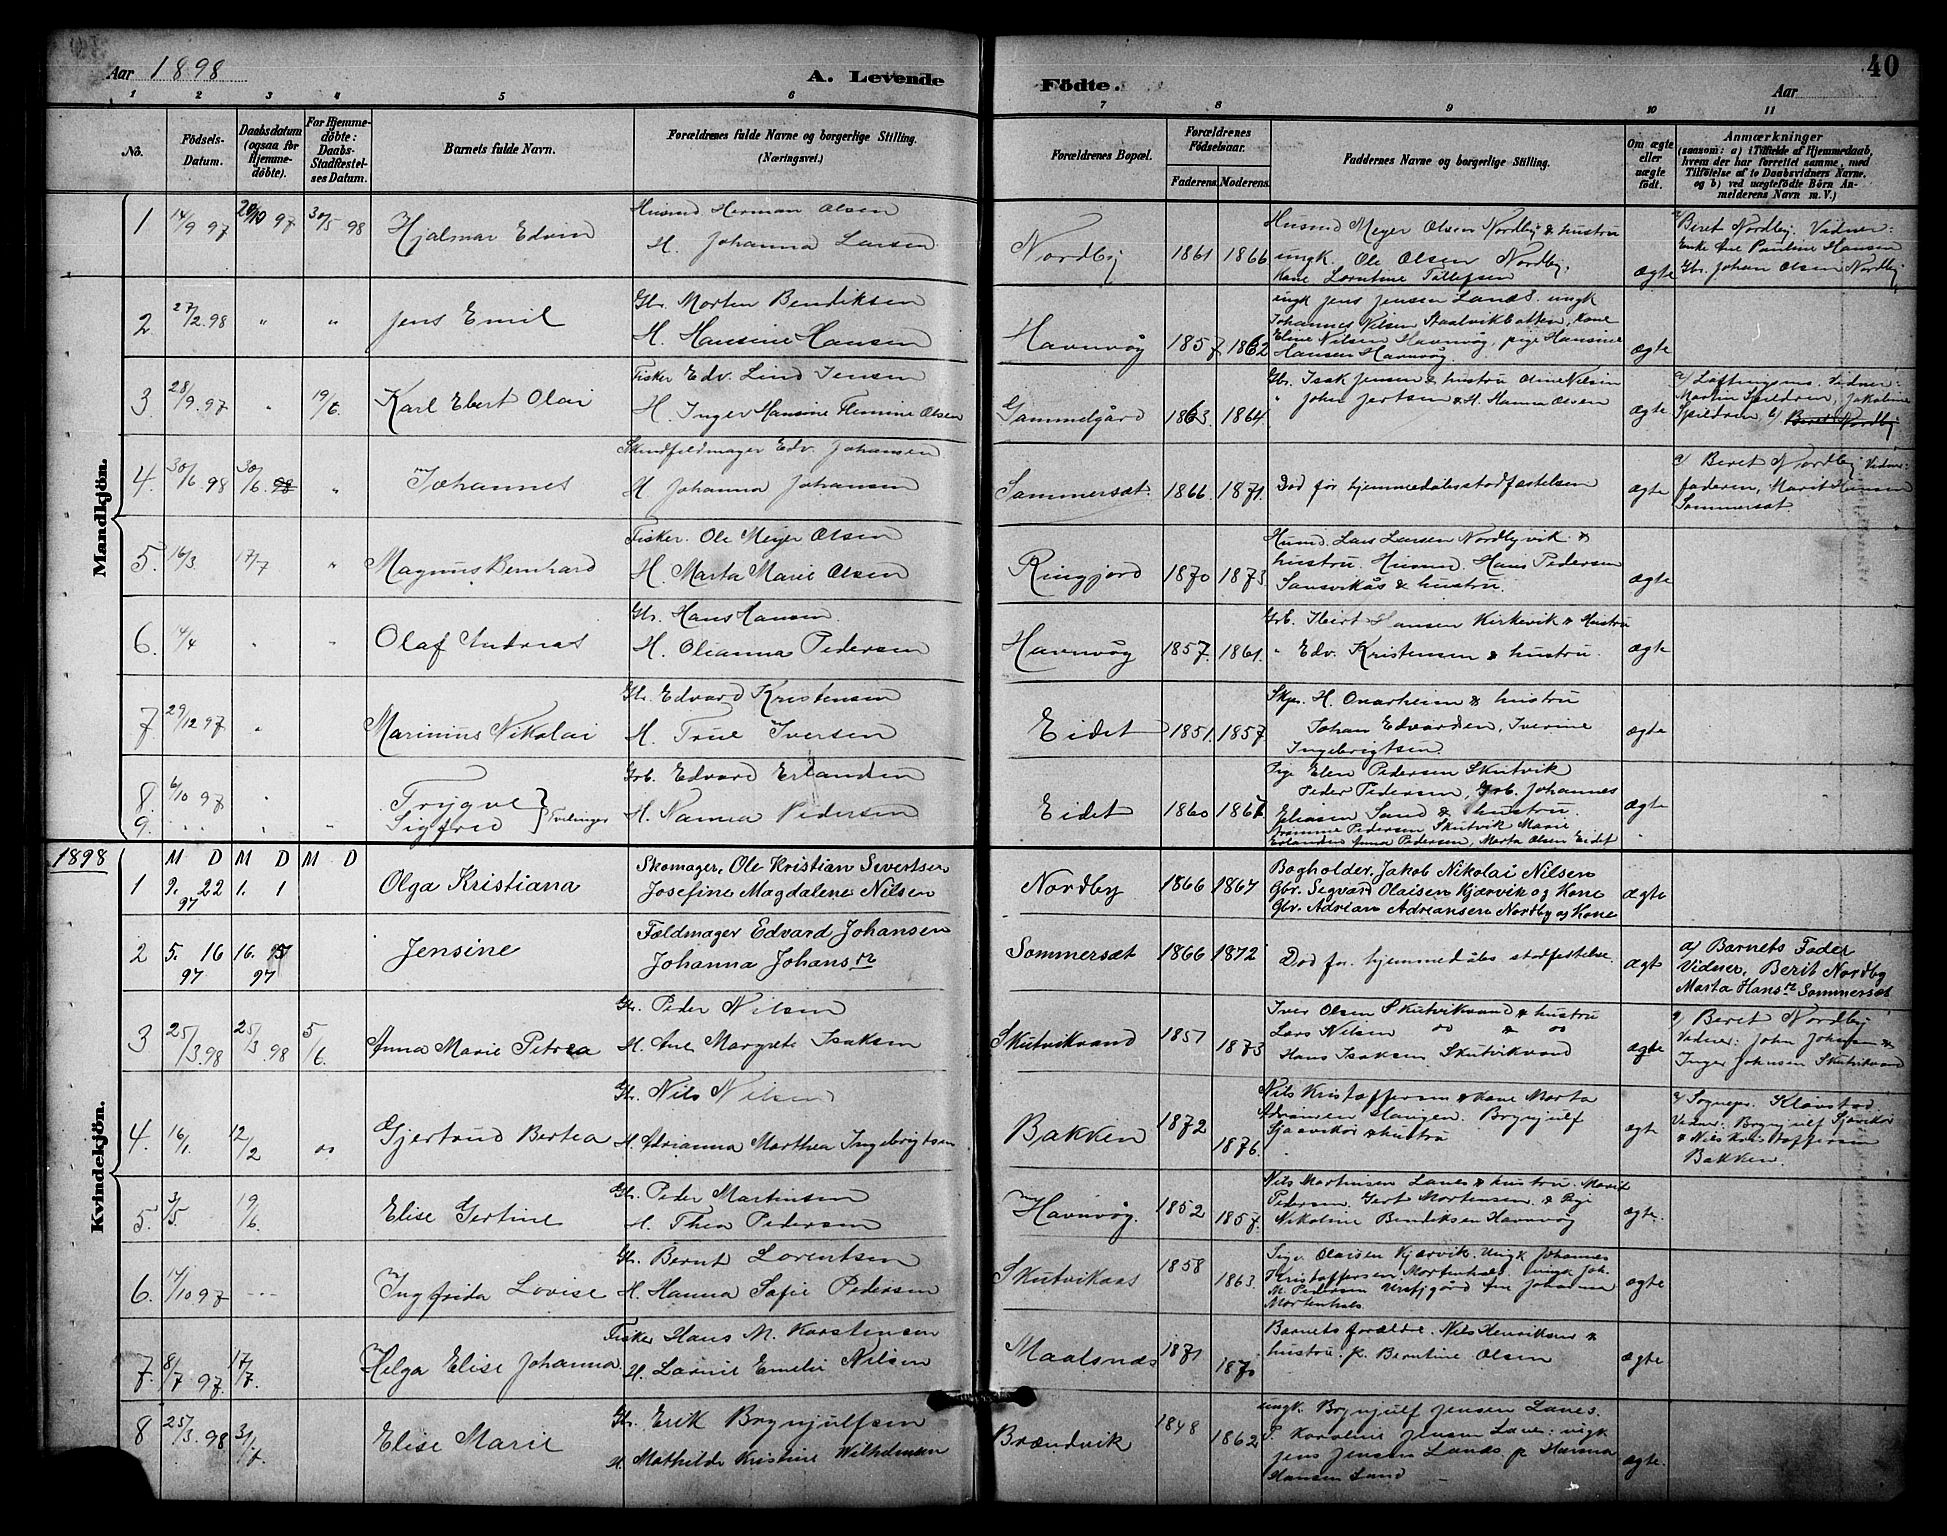 Aar 1898
A. Levende Födte.
Aar
40
1 2 3 4 5 6 7 8 9 10 11
No.
Födsels-Datum.
Daabsdatum (ogsaa for Hjemme-döbte).
For Hjemme-döbte: Daabs-Stadfæstel-ses Datum.
Barnets fulde Navn.
Forældrenes fulde Navne og borgerlige Stilling.
(Næringsvei.)
Forældrenes Bopæl.
Forældrenes Födselsaar.
Faderens. Moderens.
Faddernes Navne og borgerlige Stilling.
Om ægte eller uægte födt.
Anmærkninger
(saasom: a) i Tilfælde af Hjemmedaab, hvem der har forrettet samme, med Tilföielse af to Daabsvidners Navne, og b) ved uægtefödte Börn An-melderens Navn m. V.)
Mandkjön.
1 14/9 97 20/10 97 30/5 98 Hjalmar Edvin
Husmd Herman Olsen
H. Johanna Larsen
Nordby 1861 1866
Husmd Meyer Olsen Nordby & hustru
ungk. Ole Olsen Nordby.
Kone Lorntine Tollefsen
ægte
a/ Beret Nordby. Vidner:
Enke Ane Pauline Hansen
Gbr. Johan Olsen Nordby
2 27/2.98 " " Jens Emil
Gbr Morten Bendiksen
H. Hansine Hansen
Havnvåg 1857 1862
ungk Jens Jenssen Lanes. ungk
Johannes Nilsen Staalvikbotten, Kone
Eline Nilsen Havnvåg, pige Hansine
Hansen Havnvåg.
ægte
3. 28/9.97 " 19/6. Karl Ebert Olai
Fisker Edv. Lind Jensen
H. Inger Hansine Flemine Olsen
Gammelgård 1863. 1864.
Gbr. Isak Jensen & hustru Oline Nilsen
" John Jertsen & H. Hanna Olsen
ægte
Vidner:
4. 30/6 98 30/6.98 " Johannes
Skindfeldmager Edv. Johansen
H Johanna Johansen
Sommersæt. 1866. 1871.
Død før hjemmedåbsstadfæstelsen
ægte
a/ Beret Nordby Vidner:
faderen, Marit Hansen
Sommersæt.
5. 16/3. 17/7 " Magnus Bernhard
Fisker. Ole Meyer Olsen
H. Marta Marie Olsen
Ringjord 1870 1873
Husmd. Lars Larsen Nordbyvik &
hustru. Husmd. Hans Pedersen
Sansvikås & hustru.
ægte
6. 14/4 " " Olaf Andreas
Gbr. Hans Hansen
H. Olianna Pedersen
Havnvåg 1857. 1861.
Grb. Ibert Hansen Kirkevik & Hustru
" Edv. Kristensen & hustru.
ægte
7 29/12 97 " Marinius Nikolai
Gbr. Edvard Kristensen
H. True Iversen
Eidet 1851. 1857
Skpr. H. Onarheim & hustru
Johan Edvardsen, Iverine
Ingebrigtsen.
ægte
8. 6/10 97 " Trygve
9. " " " " Sigfred } Tvillinger
Grb. Edvard Erlandsen
H. Nanna Pedersen
Eidet 1860 1867
Pige Elen Pedersen Skutvik
Peder Pedersen, Grb. Johannes
Eliasen Sand & hustru.
Pedersen Skutvik Marie
Erlandsen Anna Pedersen, Marta Olsen Eidet
ægte
Kvindekjön.
1898 M D M D M D
1 9. 22 97 1. 1 Olga Kristiana
Skomager. Ole Kristian Sivertsen
Josefine Magdalene Nilsen
Nordby 1866 1867
Bogholder. Jakob Nikolai Nilsen
Gbr. Segvard Olaisen Kjærvik og Kone
Gbr. Adrian Adriansen Nordby og Kone
ægte
2 5. 16 97 16. 97 Jensine
Fældmager Edvard Johansen
Johanna Johansn
Sommersæt 1866 1872
Død før hjemmedåbs stadfestelse.
ægt
a) Barnets Fader
Vidner, Berit Nordby
Marta Hansn Sommersæt
3 25/3.98 25/3.98 5/6. Anna Marie Petrea
Gbr. Peder Nilsen
H. Ane Margrete Isaksen
Skutvikvand 1851 1873
Iver Olsen Skutvikvand & hustru
Lars Nilsen " & "
Hans Isaksen Skutvikvand
ægte
a/ Beret Nordby
Vidner: John Johnsen &
Inger Johnsen Skutvikvand
4. 16/1. 12/2 " Gjertrud Bertea
Gbr. Nils Nilsen
H. Adrianna Marthea Ingebrigtsen
Bakken 1872 1876.
Nils Kristoffersen & kone Marta
Brynjulf
Sjaavikør & hustru
ægte
a/ Sognepr. Klavstad
Vidner: Brynjulf Sjåvikør
& Nils Kristoffersen
Bakken.
5. 3/5. 19/6. Elise Gertine
Gbr. Peder Martinsen
H. Thea Pedersen
Havnvåg. 1852 1857.
Nils Martinsen Lanes & hustru. Marit
Pedersen. Gert Mortensen. & Pige
Nikoline Bendiksen Havnvåg
ægte.
6. 14/10 97 Ingfrida Lovise
Gbr. Bernt Lorentsen
H. Hanna Sofie Pedersen
Skutvikaas 1858 1863.
Sigv. Olaisen Kjærvik. Ungk Johannes
Kristoffersen. Mortenhals ungk Joh.
M. Pedersen Ursfjgård Ane Johanna
Mortenhals
ægte
7. 8/7 97. 17/7. Helga Elise Johanna
Fisker Hans M. Karstensen
H. Lavine Emelie Nilsen
Maalsnæs 1871 1870
Barnets forældre. Nils Henriksen &
hustru. p. Berntine Olsen
ægte
8 25/3.98 31/7. Elise Marie
Gbr. Erik Brynjulfsen
H. Mathilde Kristine Wilhelmsen
Brændvik 1848 1862
ungk. Brynjulf Jensen Lanes.
P. Karoline Jensen Lanes: ungk
Jens Jensen Lanes p Hansina
Hansen Sand
ægte.